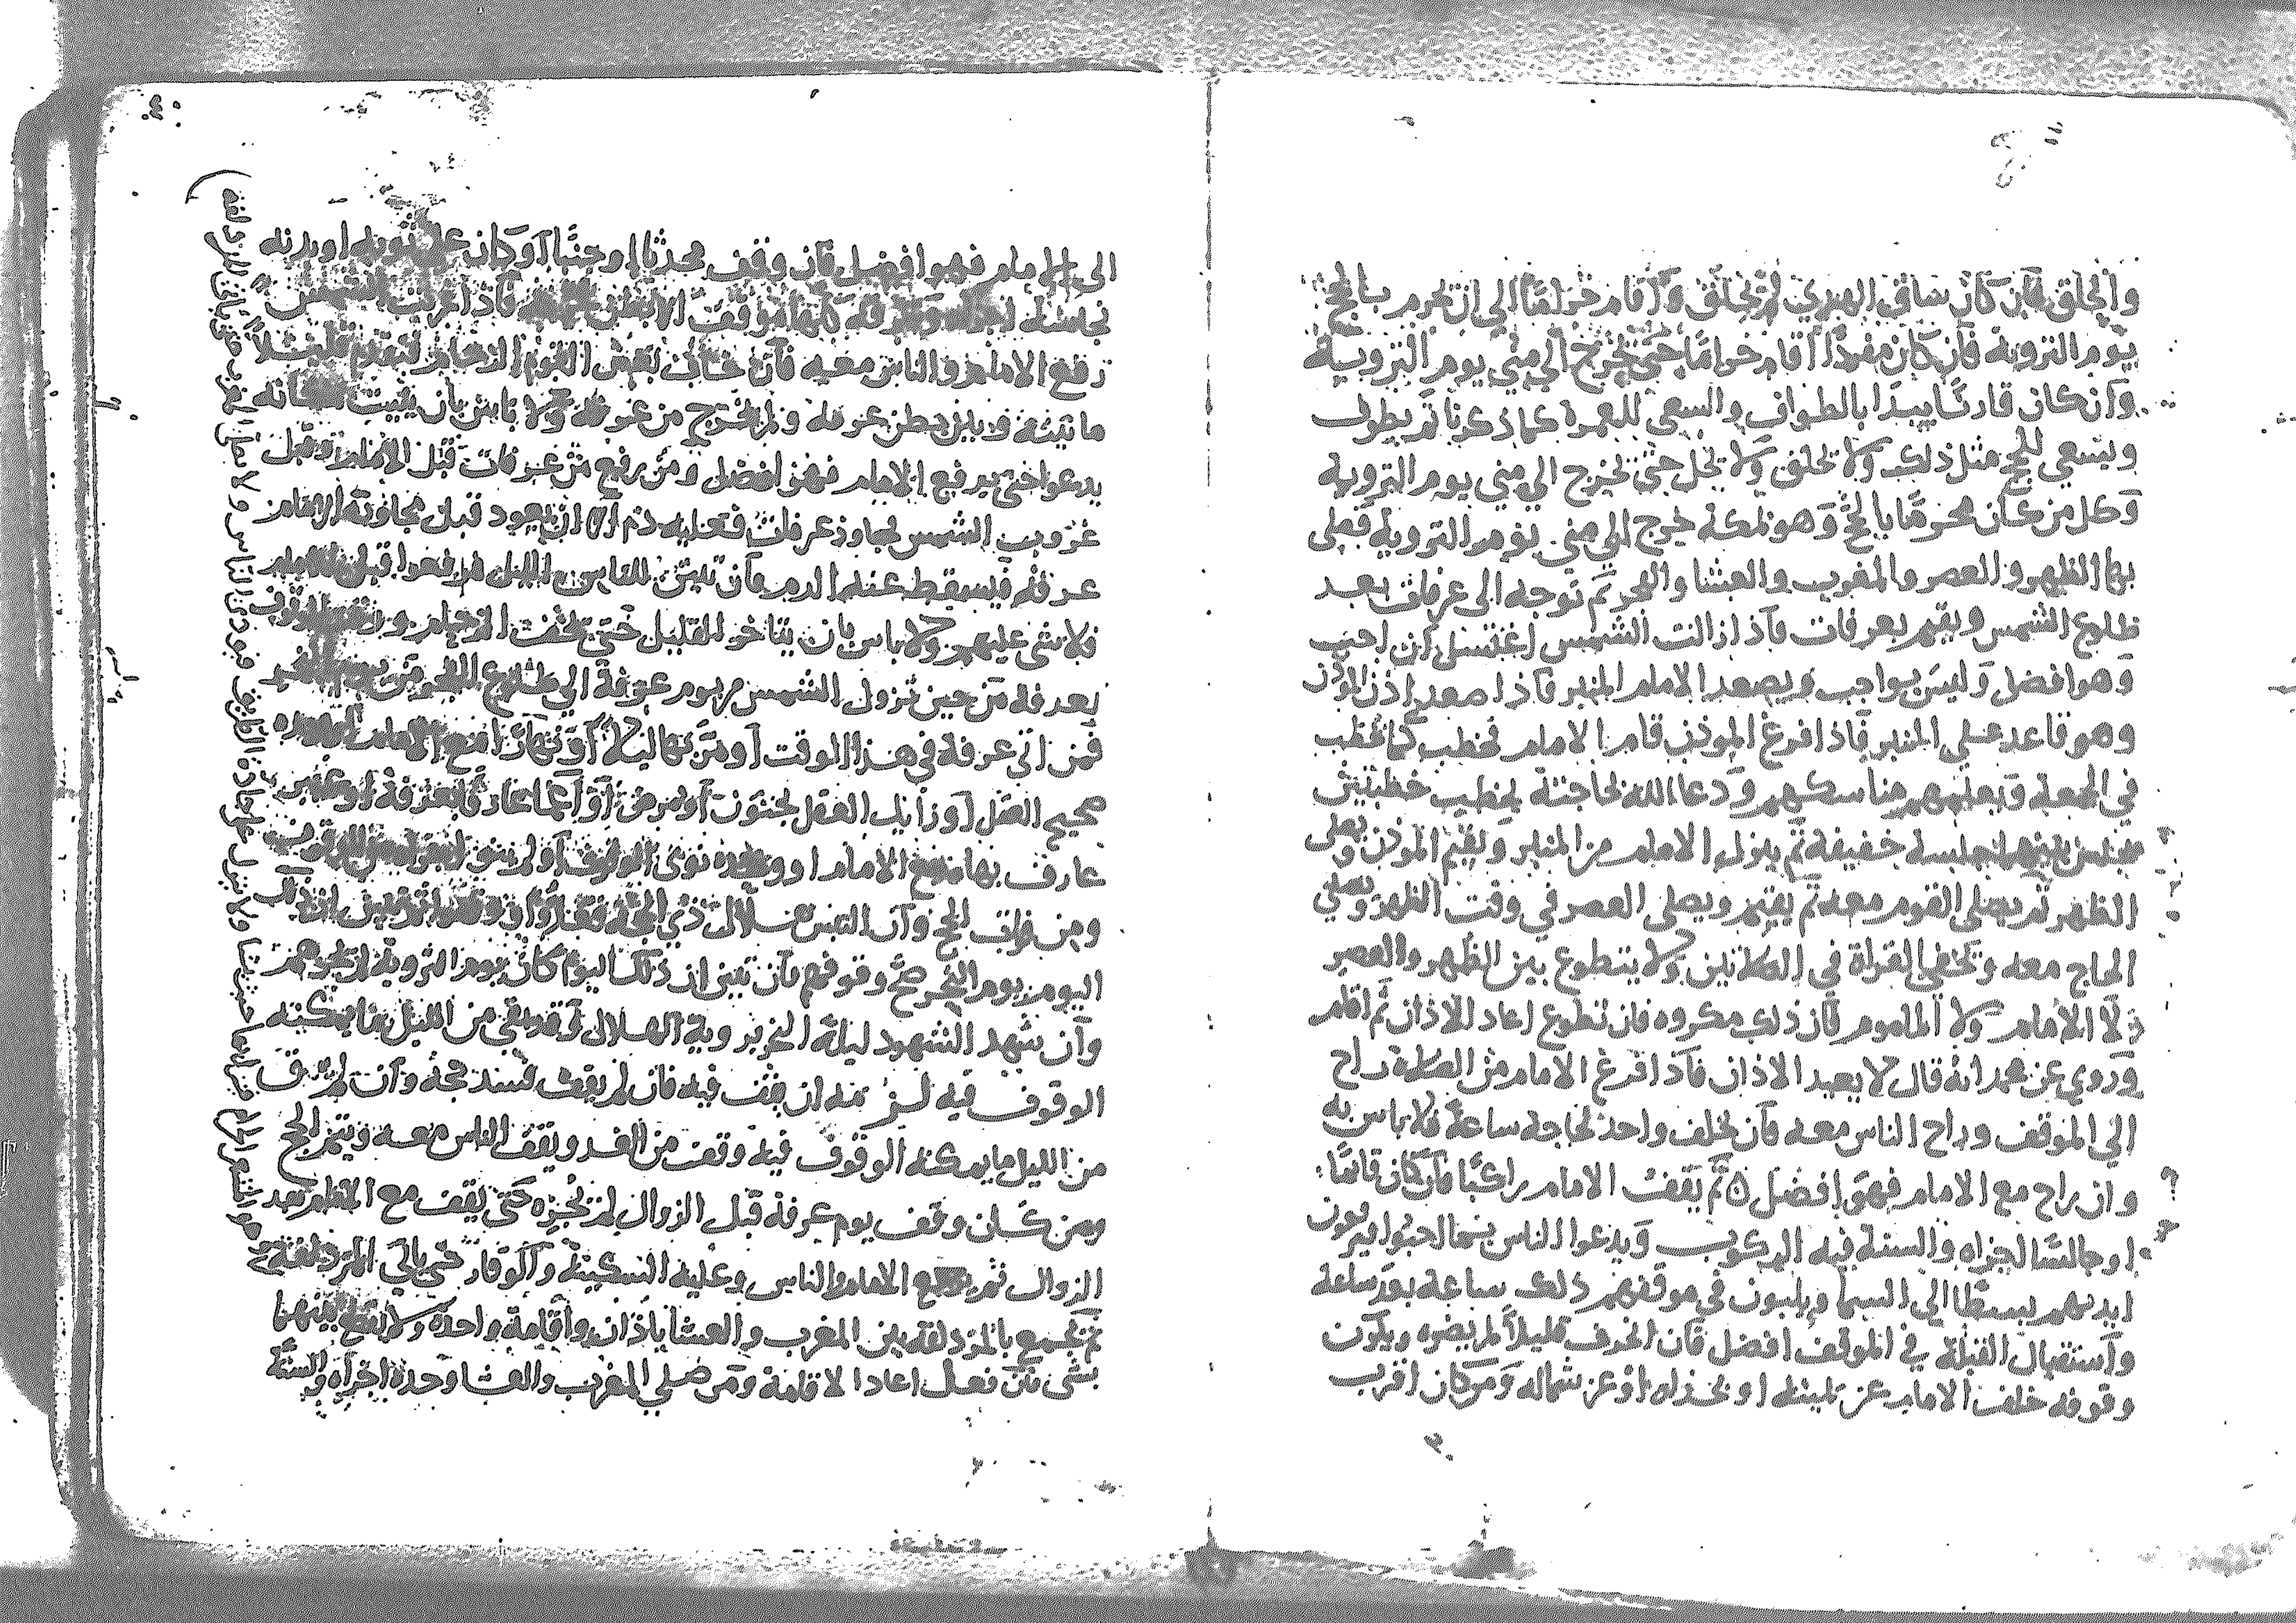 والحلق فان كان ساق الهدي لم يحلق واقام حراما الى ان يحرم بالحج
يوم التروية فان كان مفردا اقام حراما حتى يخرج الي مني يوم التروية
وان كان قارنا يبدا بالطواف والسعى للعمرة كما ذكرنا ثم يطوف
ويسعي للحج مثل ذلك ولا يحلق ولا يحل حتى يخرج الي مني يوم التروية
وكل من كان محرما بالحج وهو بمكة خرج الي مني يوم التروية فصلى
بها الظهر والعصر والمغرب والعشا والفجر ثم توجه الى عرفات بعد
طلوع الشمس ويقيم بعرفات فاذا زالت الشمس اغتسل ان احب
وهو افضل وليس بواجب ويصعد الامام المنبر فاذا صعد اذن الموذن
وهو قاعد على المنبر فاذا فرغ الموذن قام الامام فخطب كما يخطب
في الجمعة ويعلمهم مناسكهم ودعا الله لحاجته يخطب خطبتين
بينهما جلسة خفيفة ثم ينزل الامام من المنبر ويقيم الموذن ويصلى
الظهر ثم يصلى القوم معه ثم يقيم ويصلى العصر في وقت الظهر ويصلي
الحاج معه وتخفى القراة في الصلاتين ولا يتطوع بين الظهر والعصر
لا الامام ولا الماموم فان ذلك مكروه فان تطوع اعاد الاذان ثم اقام
وروي عن محمد انه قال لا يعيد الاذان فاذا فرغ الامام من الصلاة راح
الي الموقف وراح الناس معه فان تخلف واحد لحاجة ساعة فلا باس به
وان راح مع الامام فهو افضل ثم يقف الامام راكبا فان كان قائما
او جالسا اجزاه والسنة فيه الركوب ويدعوا الناس بما احبوا ويرفعون
ايديهم بسطا الي السما ويلبون في موقفهم ذلك ساعة بعد ساعة
واستقبال القبلة في الموقف افضل فان انحرف قليلا لم يضره ويكون
وقوفه خلف الامام عن يمينه او بحذاه او عن شماله ومن كان اقرب
الى الامام فهو افضل فان وقف محدثا او جنبا او كان على ثوبه او بدنه
نجاسة وعرفة كلها موقف الا بطن فاذا غربت الشمس
دفع الامام والناس معه فان خاف بعض القوم الزحام فتقدم قليلا
ما بينه وبين بطن عرفة ولم يخرج من عرفة ولا باس بان يثبت مكانه
يدعوا حتى يدفع الامام فهو افضل ومن دفع من عرفات قبل الامام وقبل
غروب الشمس فجاوز عرفات فعليه دم الا ان يعود قبل مجاوزة الامام
عرفة فيسقط عنه الدم فان تبين للناس الليل فدفعوا قبل الامام
فلا شى عليهم ولا باس بان يتاخر القليل حتى يخف الزحام ووقت الوقوف
بعرفة من حين تزول الشمس من يوم عرفة الي طلوع الفجر من يوم النحر
فمن اتى عرفة في هذا الوقت او مر بها ليلا او نهارا مع الامام او وحده
صحيح العقل او زايل العقل لجنون او مرض او اغما عارفا بعرفة او غير
عارف بها مع الامام او وحده نوى الوقوف او لم ينو
ومن فاته الحج وان التبس هلال ذي الحجة فوقفوا ثم تبين ان ذلك
اليوم يوم النحر صح وقوفهم فان تبين ان ذلك اليوم كان يوم التروية لم يجزهم
وان شهد الشهود ليلة النحر بروية الهلال وقد بقي من الليل ما يمكنه
الوقوف فيه لزمه ان يقف فيه فان لم يقف فسد حجه وان لم يبق
من الليل ما يمكنه الوقوف فيه وقف من الغد ويقف الناس معه ويتم الحج
ومن كان وقف يوم عرفة قبل الزوال لم يجزه حتى يقف مع الامام بعد
الزوال ثم يدفع الامام والناس وعليه السكينة والوقار حتى ياتي المزدلفة
ثم يجمع بالمزدلفة بين المغرب والعشا باذان واقامة واحدة ولا يقطع بينهما
بشى فان فعل اعاد الاقامة ومن صلي المغرب والعشا وحده اجزاه والسنة